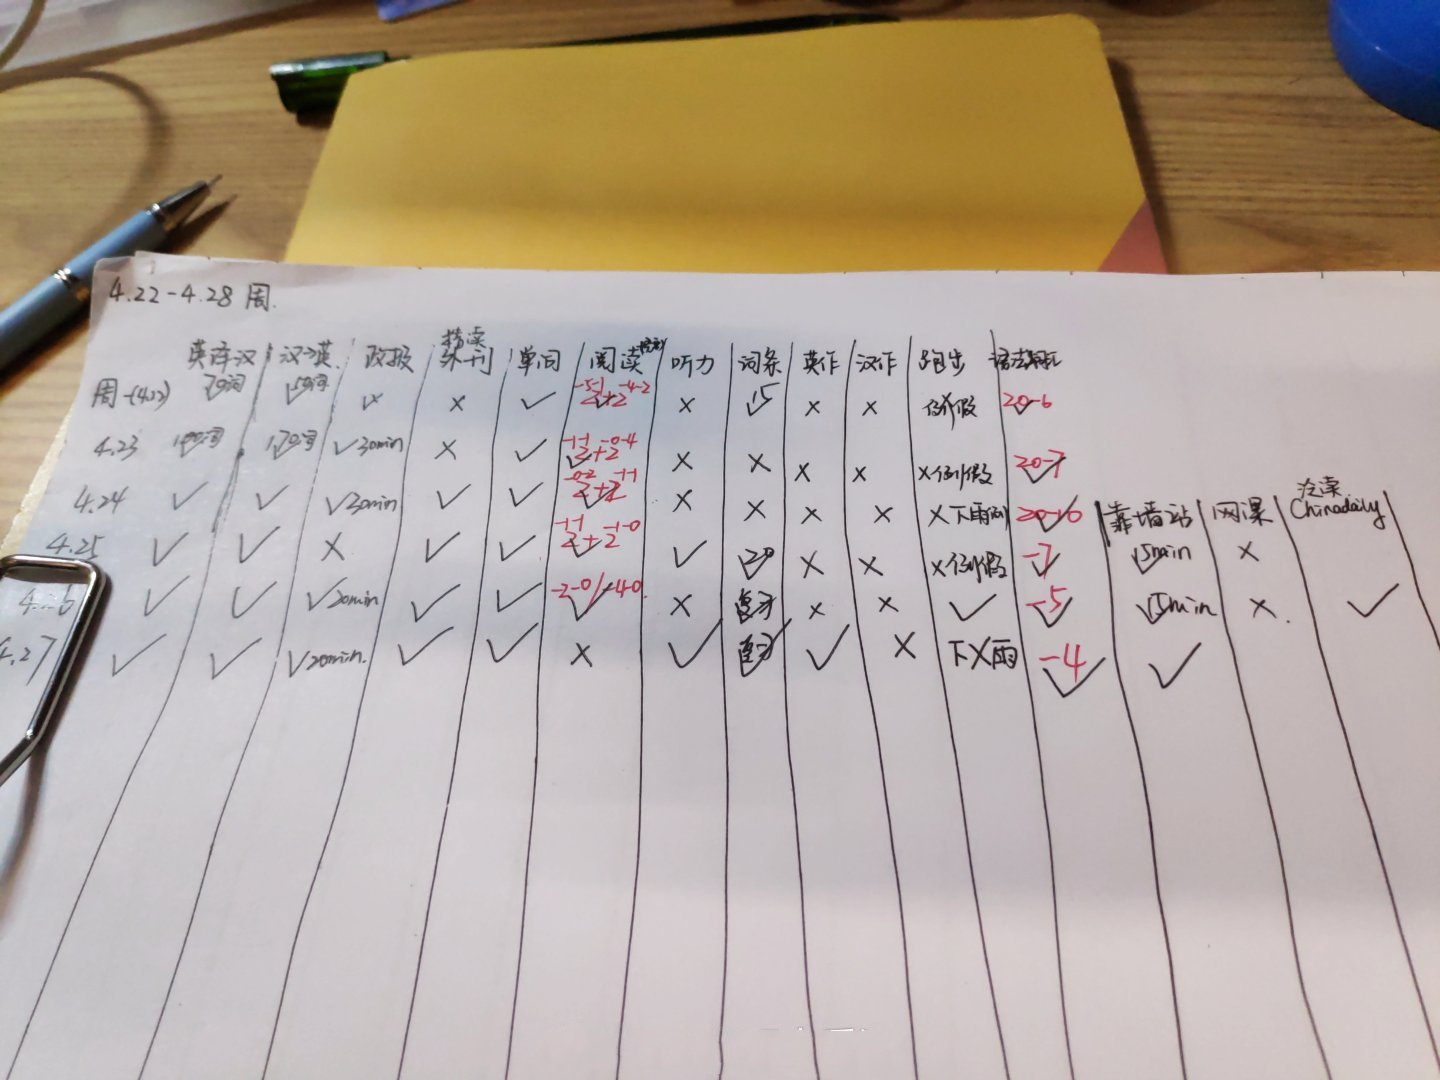 4.22-4.28 周.
英译汉 汉译英 政报 精读外刊 单词 阅读 听力 词条 英作 汉作 跑步
周一(4.22) 70词 150词 × × ✓ -5-1 -4-2 2+2 ✓ × ✓15 × × 例假 20-6 ✓
4.23 170词 ✓30min × ✓ -1-1 -0-4 2+2 ✓ × × × × ×例假 20-7 ✓
4.24 ✓ ✓ ✓30min ✓ ✓ -0-2 -1-1 2+2 ✓ × × × × ×下雨 20-10 ✓ 靠墙站 网课 泛读 Chinadaily
4.25 ✓ ✓ × ✓ ✓ -1-1 -1-0 2+2 ✓ ✓ ✓20 × × ×例假 -7 ✓ ✓15min ×
✓ ✓ ✓20min ✓ ✓ -2-0/-40 ✓ × 复习 ✓ × × ✓ -5 ✓ ✓15min × ✓
4.27 ✓ ✓ ✓20min. ✓ ✓ × ✓ 复习 ✓ ✓ × 下×雨 -4 ✓ ✓